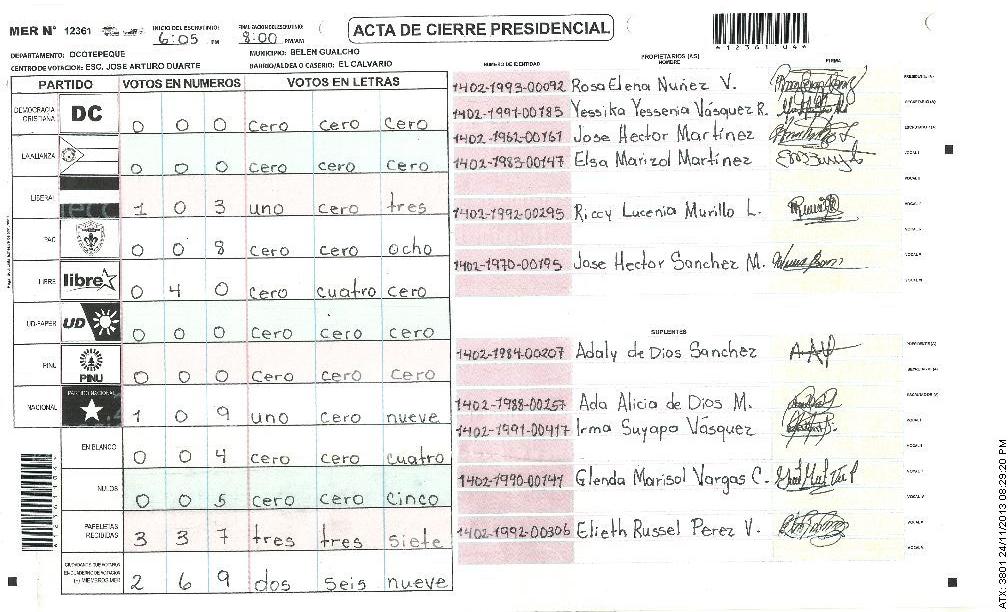 MER Nº 12361
INICIO DEL ESCRUTINIO: 6:05 PM
FINALIZACION DEL ESCRUTINIO: 8:00 PM/AM
ACTA DE CIERRE PRESIDENCIAL
DEPARTAMENTO: OCOTEPEQUE
MUNICIPIO: BELEN GUALCHO
CENTRO DE VOTACION: ESC. JOSE ARTURO DUARTE
BARRIO/ALDEA O CASERIO: EL CALVARIO
PARTIDO VOTOS EN NUMEROS VOTOS EN LETRAS
DEMOCRACIA CRISTIANA DC 0 0 0 cero cero cero
LA ALIANZA 0 0 0 cero cero cero
LIBERAL 1 0 3 uno cero tres
PAC 0 0 8 cero cero ocho
LIBRE libre 0 4 0 cero cuatro cero
UD-FAPER UD 0 0 0 cero cero cero
PINU PINU 0 0 0 cero cero cero
NACIONAL PARTIDO NACIONAL 1 0 9 uno cero nueve
EN BLANCO 0 0 4 cero cero cuatro
NULOS 0 0 5 cero cero cinco
PAPELETAS RECIBIDAS 3 3 7 tres tres siete
CIUDADANOS QUE VOTARON EN CUADERNO DE VOTACION (+) MIEMBROS MER 2 6 9 dos seis nueve
NUMERO DE IDENTIDAD
PROPIETARIOS (AS) NOMBRE
FIRMA
1402-1993-00092 Rosa Elena Nuñez V.
1402-1991-00185 Yessika Yessenia Vásquez R.
1402-1962-00161 Jose Hector Martinez
1402-1983-00147 Elsa Marizol Martinez
1402-1992-00295 Riccy Lucenia Murillo L.
1402-1970-00195 Jose Hector Sanchez M.
SUPLENTES
1402-1984-00207 Adaly de Dios Sanchez
1402-1988-00257 Ada Alicia de Dios M.
1402-1991-00417 Irma Suyapo Vásquez
1402-1990-00747 Glenda Marisol Vargas C.
1402-1992-00306 Elieth Russel Perez V.
ATX: 3801 24/11/2013 08:29:20 PM